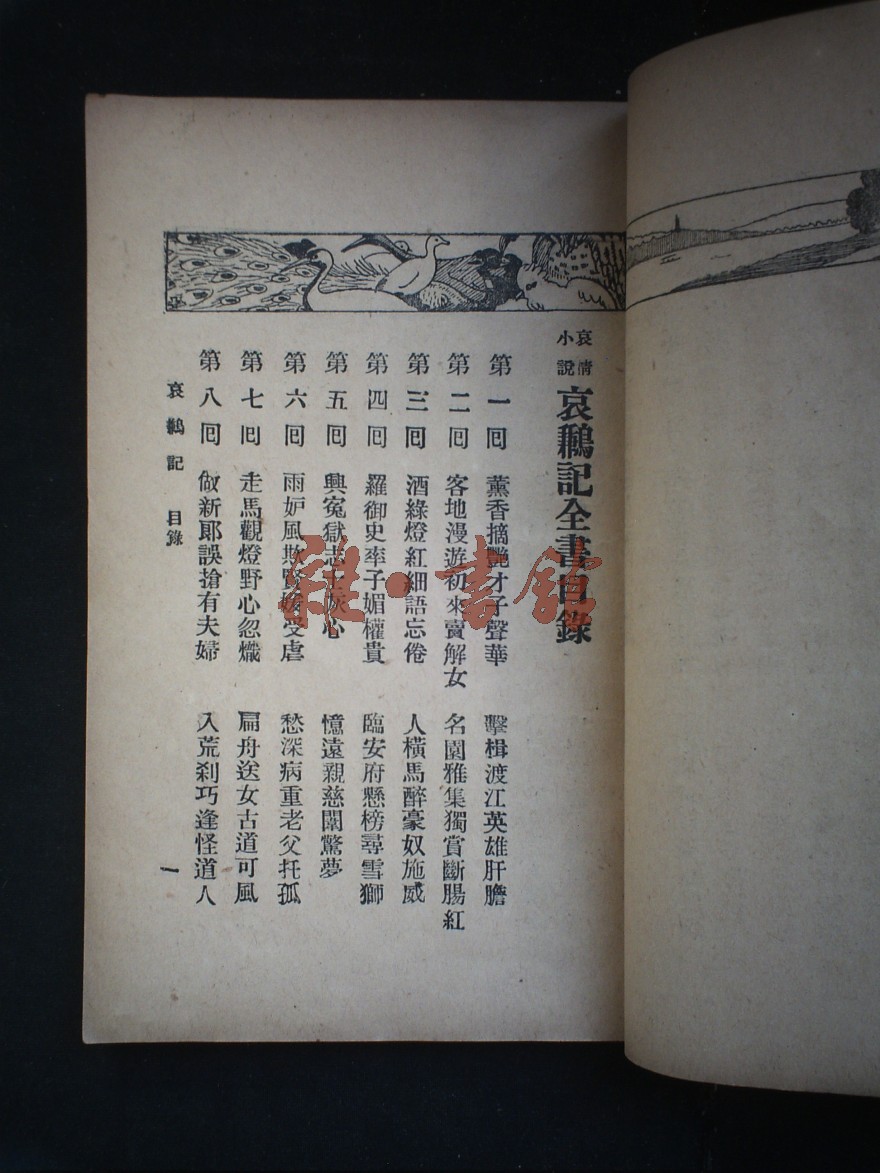 哀情小說 哀鵜記全書目錄
第一囘 薰香摘艷才子聲華 擊楫渡江英雄肝膽
第二囘 客地漫遊初來賣解女 名園雅集獨賞斷腸紅
第三囘 酒綠燈紅細語忘倦 人橫馬醉豪奴施威
第四囘 羅御史率子媚權貴 臨安府懸榜尋雪獅
第五囘 興冤獄志士灰心 憶遠親慈闈驚夢
第六囘 雨妒風欺賢媛受虐 愁深病重老父托孤
第七囘 走馬觀燈野心忽熾 扁舟送女古道可風
第八囘 做新郞誤搶有夫婦 入荒刹巧逢怪道人
哀鵜記 目錄
一
雜·書館